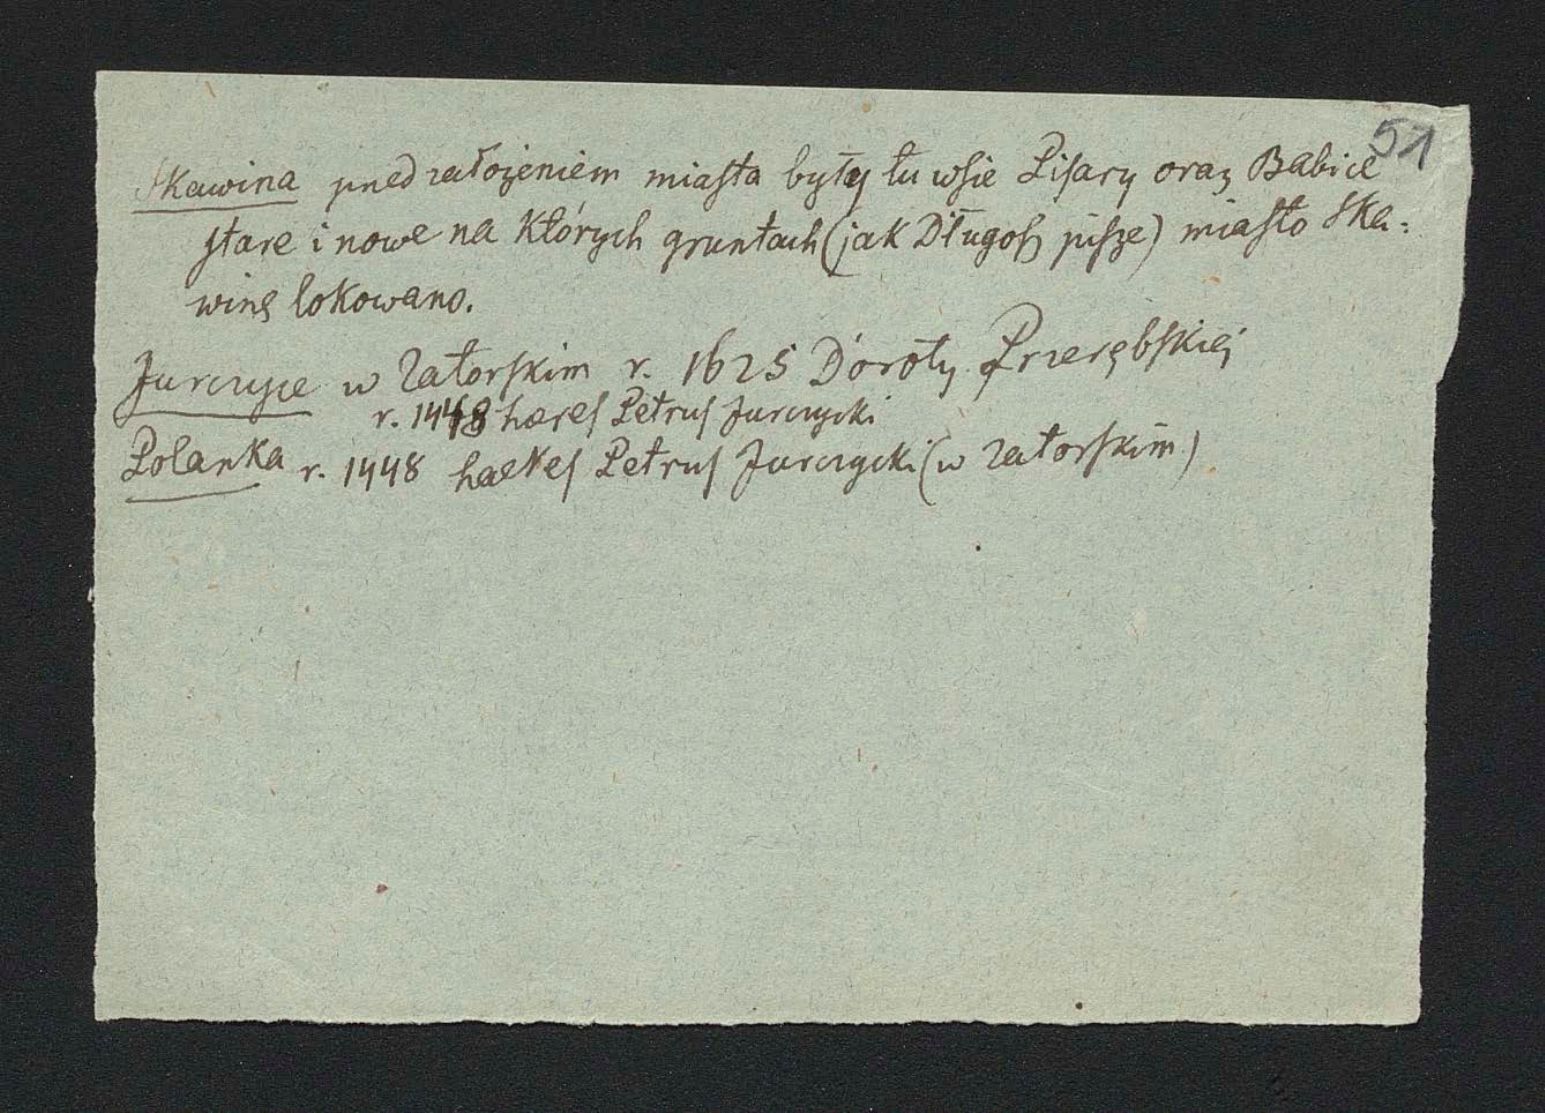 51
Skawina przed założeniem miasta były tu wsie Pisary oraz Babice
stare i nowe na których gruntach (jak Długosz pisze) miasto Ska=
winę lokowano.
Jurczyce w Zatorskim r. 1625 Doroty Przerębskiej
r. 1448 haeres Petrus Jurczycki
Polanka r. 1448 haeres Petrus Jurczycki (w Zatorskim)